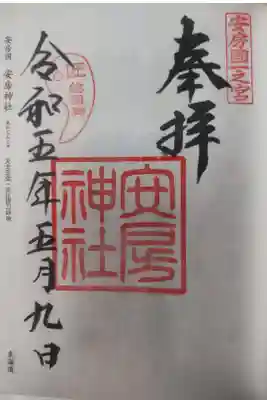 安房國一之宮
奉拝
安房神社
令和五年五月九日
安房国 安房神社
東海道